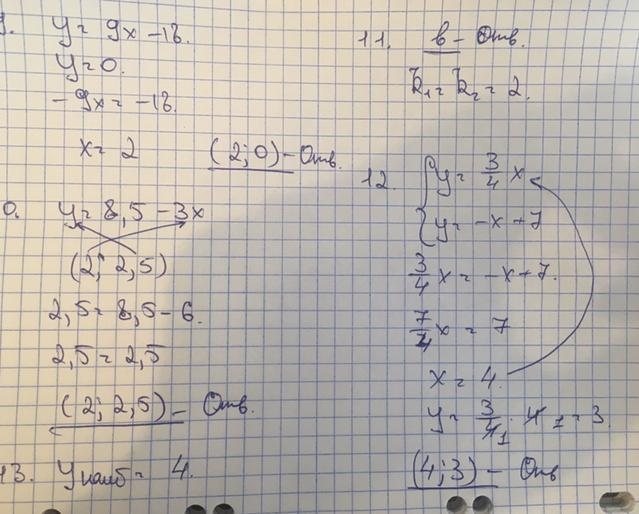 9. y = 9x - 18.
y = 0.
-9x = -18.
x = 2 (2; 0) - Отв.
0. y = 8,5 - 3x
(2; 2,5)
2,5 = 8,5 - 6.
2,5 = 2,5
(2; 2,5) - Отв.
13. yнаиб = 4.
11. в - Отв.
k₁ = k₂ = 2.
12. { y = 3/4 x
{ y = -x + 7
3/4 x = -x + 7.
7/4 x = 7
x = 4.
y = 3/4₁ · 4₁ = 3.
(4; 3) - Отв